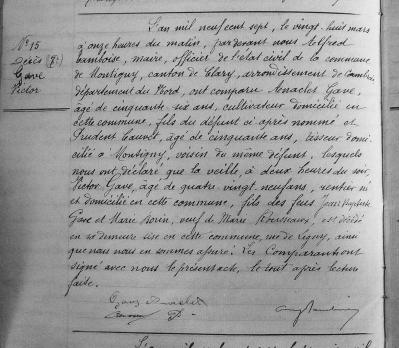 N° 15
Décès
Gave
Victor
L'an mil neuf cent sept, le vingt-huit mars
à onze heures du matin, pardevant nous Alfred
Lamboise, maire, officier de l'état civil de la commune
de Montigny, canton de Clary, arrondissement de Cambrai
département du Nord, ont comparu Anaclet Gave,
âgé de cinquante six ans, cultivateur domicilié en
cette commune, fils du défunt ci après nommé et
Prudent Cauvet, âgé de cinquante ans, tisseur domi-
cilié à Montigny, voisin du même défunt, lesquels
nous ont déclaré que la veille, à deux heures du soir,
Victor Gave, âgé de quatre-vingt-neuf ans, rentier né
et domicilié en cette commune, fils des feus Jean Baptiste
Gave et Marie, veuf de Marie, est décédé
en sa demeure sise en cette commune, rue de Ligny, ainsi
que nous nous en sommes assuré. Les Comparants ont
signé avec nous le présent acte, le tout après lecture
faite.
Gave Anaclet